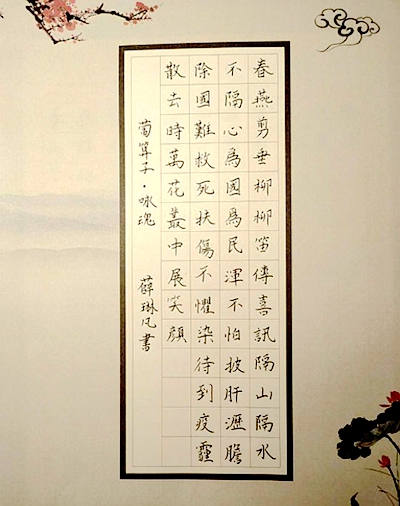 春燕剪垂柳柳笛傳喜訊隔山隔水
不隔心為國為民渾不怕披肝瀝膽
除國難救死扶傷不懼染待到疫霾
散去時萬花叢中展笑顏
蔔算子·咏瑰 薛琳凡書